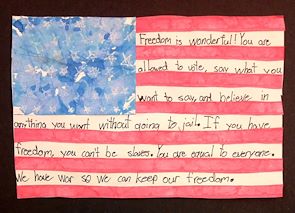 Freedom is wonderful! You are
allowed to vote, say what you
want to say, and believe in
anything you want without going to jail. If you have
freedom, you can't be slaves. You are equal to everyone.
We have war so we can keep our freedom.